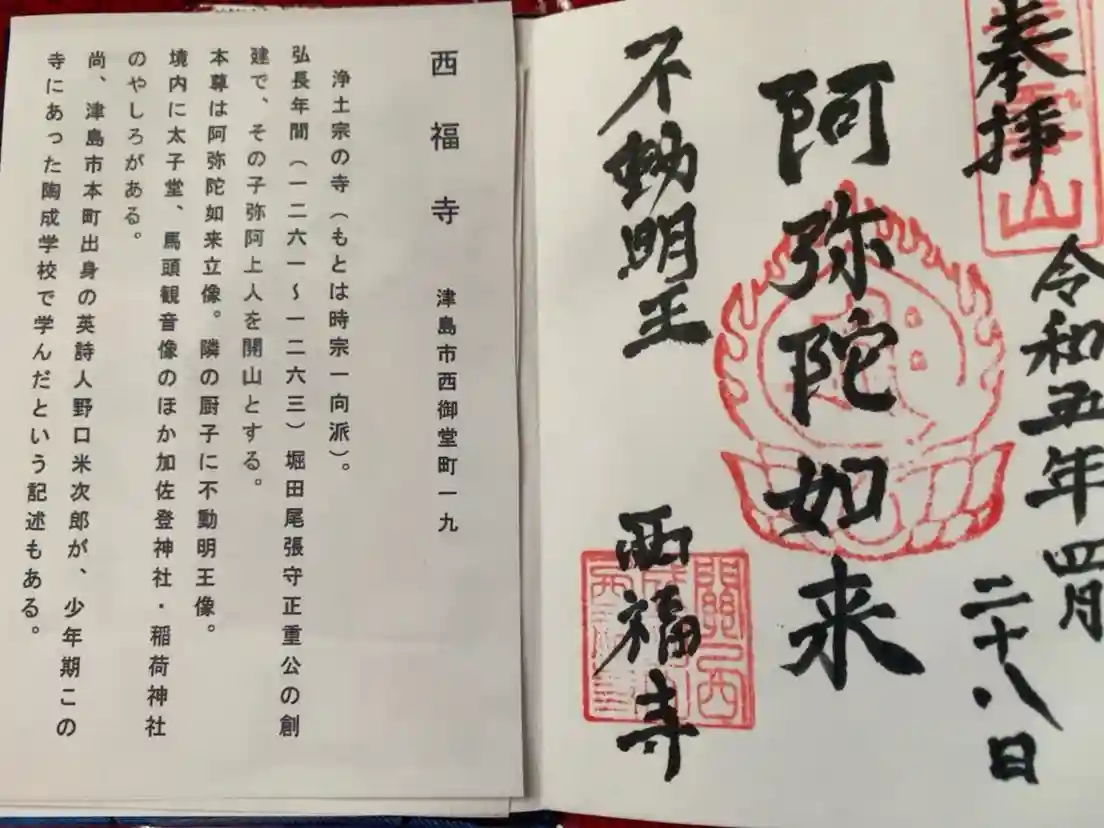 奉拝
令和五年四月
二十八日
阿弥陀如来
不動明王
西福寺
西福寺　津島市西御堂町一九
浄土宗の寺（もとは時宗一向派）。
弘長年間（一二六一～一二六三）堀田尾張守正重公の創
建で、その子弥阿上人を開山とする。
本尊は阿弥陀如来立像。隣の厨子に不動明王像。
境内に太子堂、馬頭観音像のほか加佐登神社・稲荷神社
のやしろがある。
尚、津島市本町出身の英詩人野口米次郎が、少年期この
寺にあった陶成学校で学んだという記述もある。